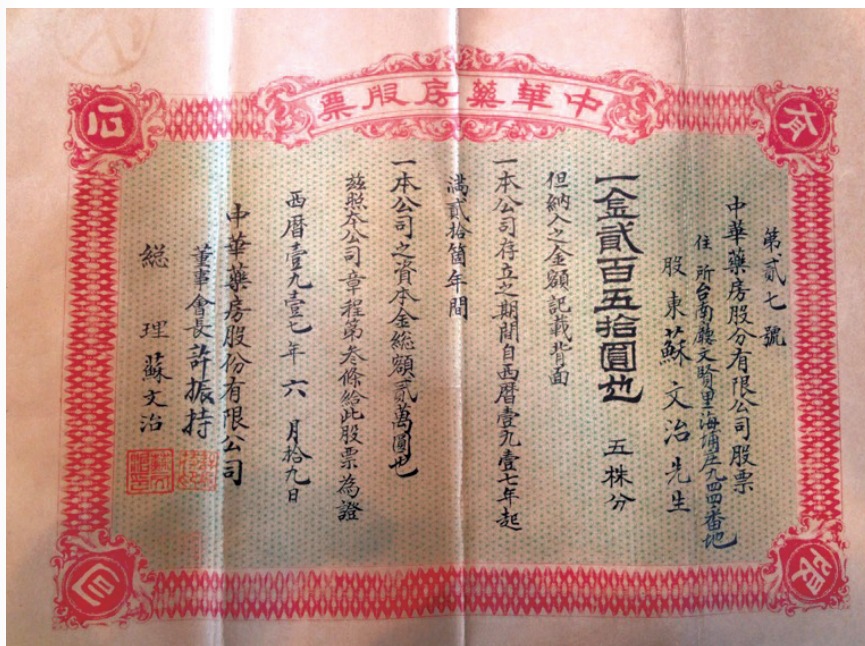 中華藥房股票
有
限
公
司
第貳七號
中華藥房股分有限公司股票
住所台南廳文賢里海埔庄九四四番地
股東蘇文治先生
一金貳百五拾圓也 五株分
但納入之金額記載背面
一本公司存立之期間自西曆壹九壹七年起
滿貳拾箇年間
一本公司之資本金總額貳萬圓也
茲照本公司章程第叁條給此股票為證
西曆壹九壹七年六月拾九日
中華藥房股份有限公司
董事會長許振持
総理蘇文治